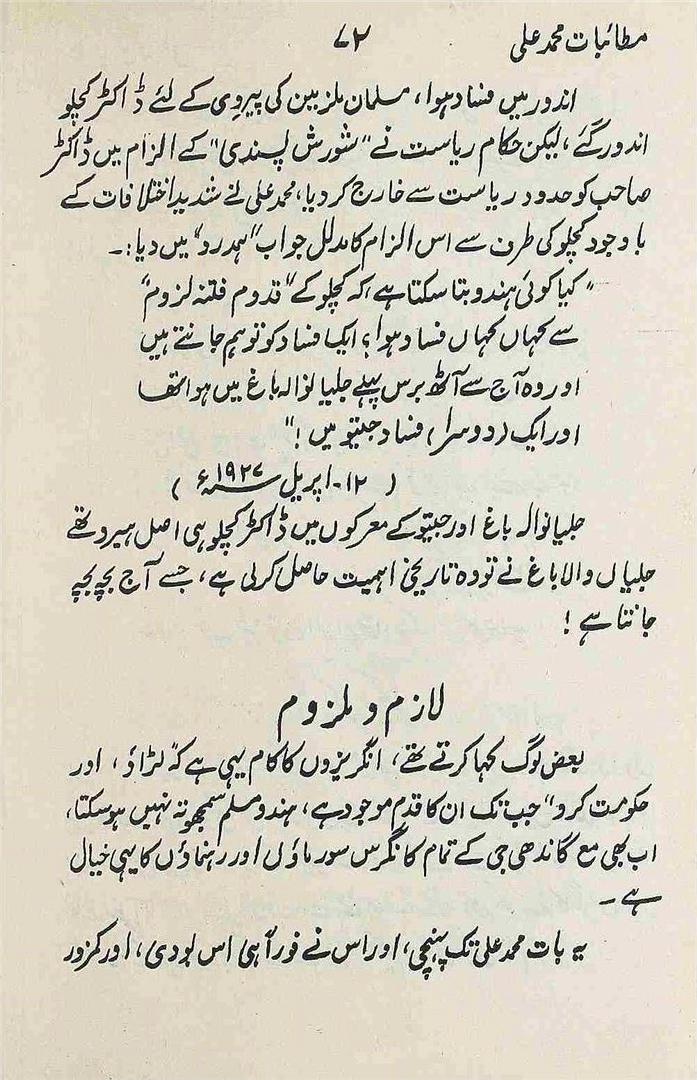 مطائبات محمد علی
۷۲
اندور میں فساد ہوا، مسلمان ملزمین کی پیروی کے لئے ڈاکٹر کچلو
اندور گئے، لیکن حکام ریاست نے "شورش پسندی" کے الزام میں ڈاکٹر
صاحب کو حدود ریاست سے خارج کر دیا، محمد علی نے شدید اختلافات کے
باوجود کچلو کی طرف سے اس الزام کا مدلل جواب "ہمدرد" میں دیا:۔
"کیا کوئی ہندو بتا سکتا ہے، کہ کچلو کے "قدوم فتنہ لزوم"
سے کہاں کہاں فساد ہوا؟ ایک فساد کو تو ہم جانتے ہیں
اور وہ آج سے آٹھ برس پہلے جلیانوالہ باغ میں ہوا تھا
اور ایک (دوسرا) فساد جیتو میں!"
(۱۲۔اپریل ۱۹۲۷ء)
جلیانوالہ باغ اور جیتو کے معرکوں میں ڈاکٹر کچلو ہی اصل ہیرو تھے
جلیاں والا باغ نے تو وہ تاریخی اہمیت حاصل کر لی ہے، جسے آج بچہ بچہ
جانتا ہے!
لازم و ملزوم
بعض لوگ کہا کرتے تھے، انگریزوں کا کام یہی ہے کہ "لڑاؤ، اور
حکومت کرو" جب تک ان کا قدم موجود ہے، ہندو مسلم سمجھوتہ نہیں ہو سکتا،
اب بھی مع گاندھی جی کے تمام کانگرس سورماؤں اور رہنماؤں کا یہی خیال
ہے۔
یہ بات محمد علی تک پہنچی، اور اس نے فوراً ہی اس بودی، اور کمزور